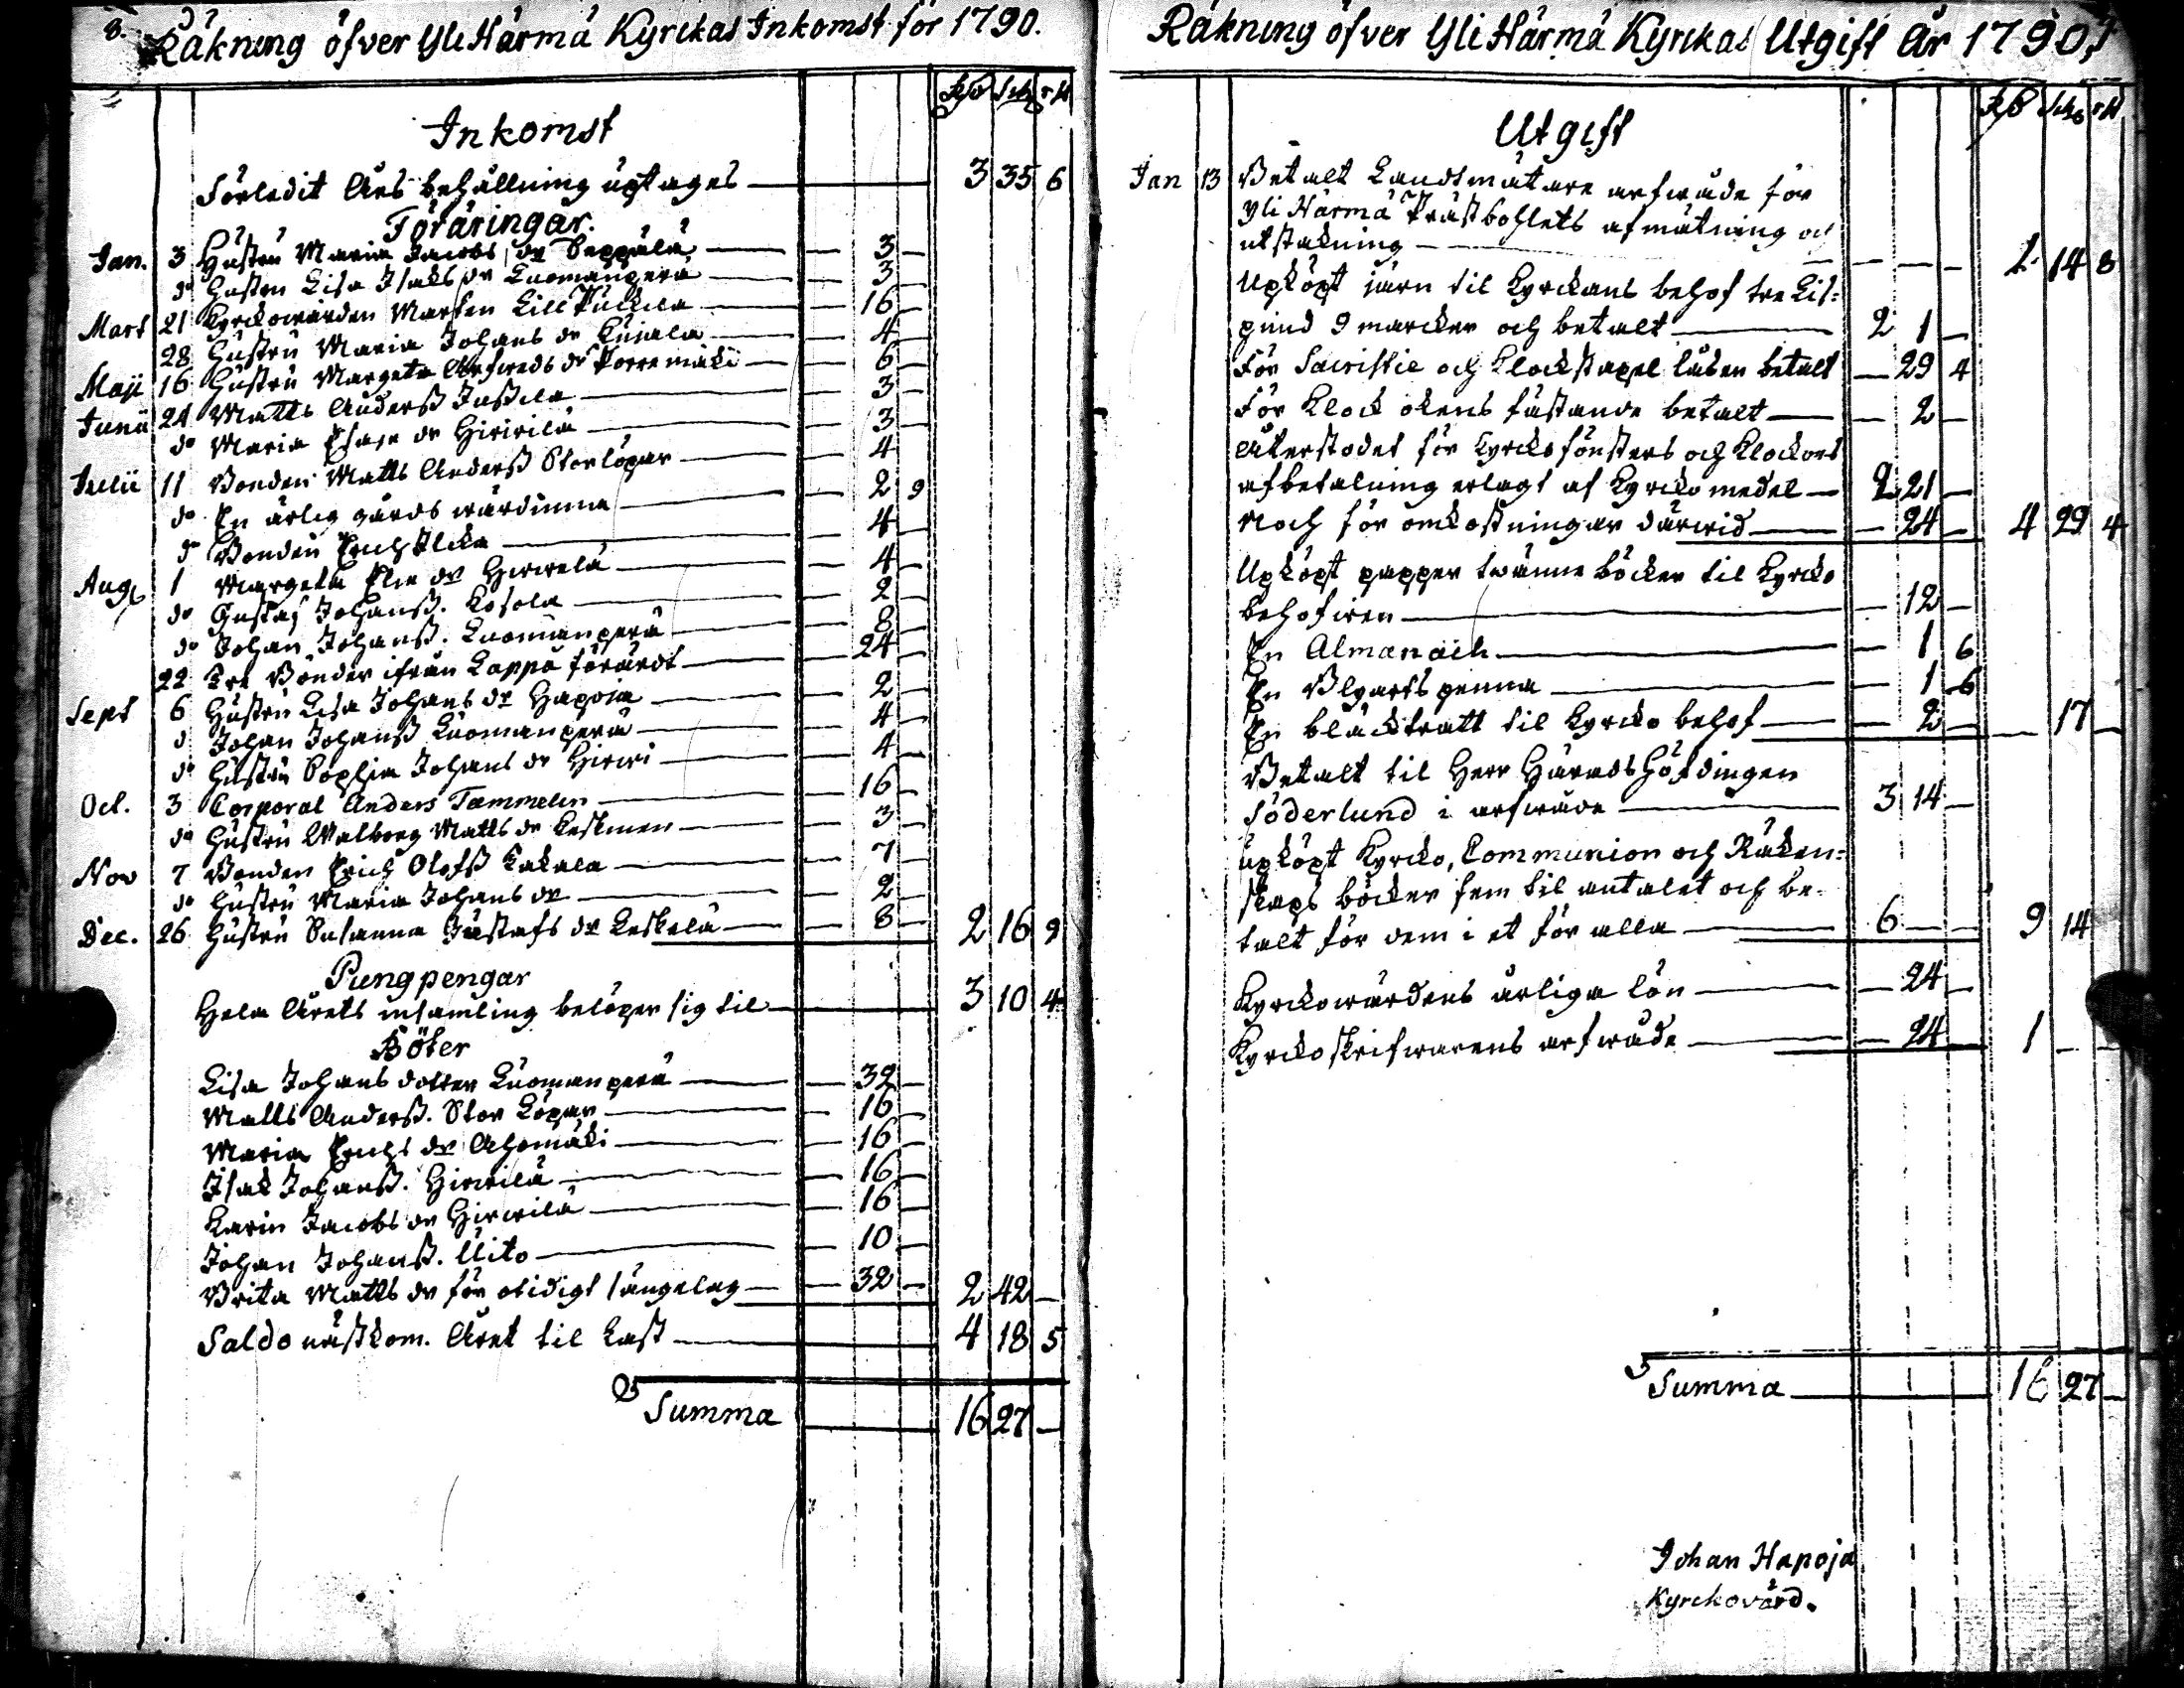 8.
Räkning öfver Yli Härmä Kyrckas Inkomst för 1790.
Rd Sch rst
Inkomst
Förledit Års behållning uptages — 3 35 6
Föräringar.
Jan. 3 Hustru Maria Jacobs dr Seppälä — 3 —
do Hustru Lisa Isaks dr Luomanperä — 3 —
Mart 21 Kyrckowärden Marten Lill Pukila — 16 —
28 Hustru Maria Johans dr Kujala — 4 —
Maji 16 Hustru Margeta Alfreds dr Porremäki — 6 —
Junii 24 Matts Anderss Jussila — 3 —
do Maria Esaje dr Hirvilä — 3 —
Julii 11 Bonden Matts Anderss Storlöpar — 4
do En ärlig gårds wärdinna — 2 9
do Bonden Erich Ilcka — 4 —
Aug. 1 Margeta Elie dr Hirwelä — 4 —
do Gustaf Johanss. Kosola — 2 —
do Johan Johanss. Luomanperä — 8 —
22 Tre Bönder ifrån Lappo förärdt — 24 —
Sept 6 Hustru Lisa Johans dr Hapoja — 2 —
d Johan Johanss Luomanperä — 4 —
do Hustru Sophia Johans dr Hirwi — 4 —
Oct. 3 Corporal Anders Tammelin — 16 —
do Hustru Walborg Matts dr Keskinen — 3 —
Nov 7 Bonden Erich Olofss Kakela — 7 —
do Hustru Maria Johans dr — 2 —
Dec. 26 Hustru Susanna Gustafs dr Keskelä — 8 — 2 16 9
Pung pengar
Hela Årets insamling belöper sig til — 3 10 4
Böter
Lisa Johans dotter Luomanperä — 32 —
Matts Anderss. Stor Löpar — 16 —
Maria Erichs dr Ahomäki — 16 —
Isak Johanss. Hirvilä — 16 —
Karin Jacobs dr Hirwilä — 16 —
Johan Johanss. Uito — 10 —
Brita Matts dr för otidigt sängelag — 32 — 2 42 —
Saldo nästkom. Året til Last — 4 18 5
Summa — 16 27 —
Räkning öfver Yli Härmä Kyrckas Utgift År 1790.
Rd Sch rst
Utgift
Jan 13 Betalt Landtmätare arfwåde för
Yli Härmä Prästbohlets afmätning och
utstakning — 1 14 8
Upköpt järn til Kyrckans behof tre Lis=
pund 9 marcker och betalt — 2 1 —
För Sacristie och Klockstapel låsen betalt — 29 4
För Klock okens fästande betalt — 2 —
Återstodet för Kyrcko fönsters och Klockors
afbetalning erlagt af Kyrcko medel — 2 21 —
Noch för omkostningar därwid — 24 — 4 29 4
Upköpt papper twänne böcker til Kyrcko
behofwen — 12 —
En Almanach — 1 6
En Blyarts penna — 1 6
En bläcktratt til Kyrcko behof — 2 — 17 —
Betalt til Herr Härads Höfdingen
Söderlund i arfwåde — 3 14 —
upköpt Kyrcko, Communion och Räken=
skaps böcker fem til antalet och be=
talt för dem i et för alla — 6 — — 9 14
Kyrckowärdens årliga lön — 24 —
Kyrckoskrifwarens arfwåde — 24 — 1 — —
Summa — 16 27 —
Johan Hapoja
Kyrckovärd.